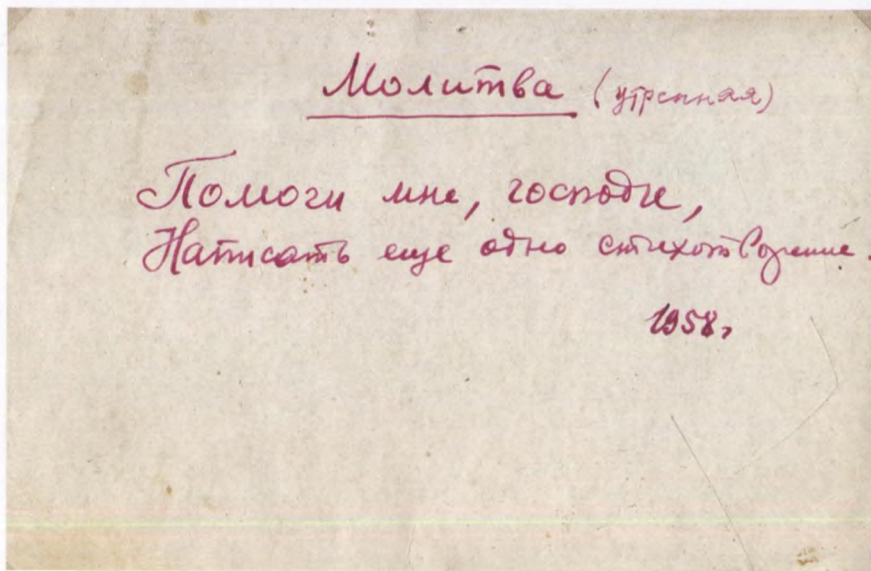 Молитва (утренняя)
Помоги мне, господи,
Написать еще одно стихотворение.
1958г